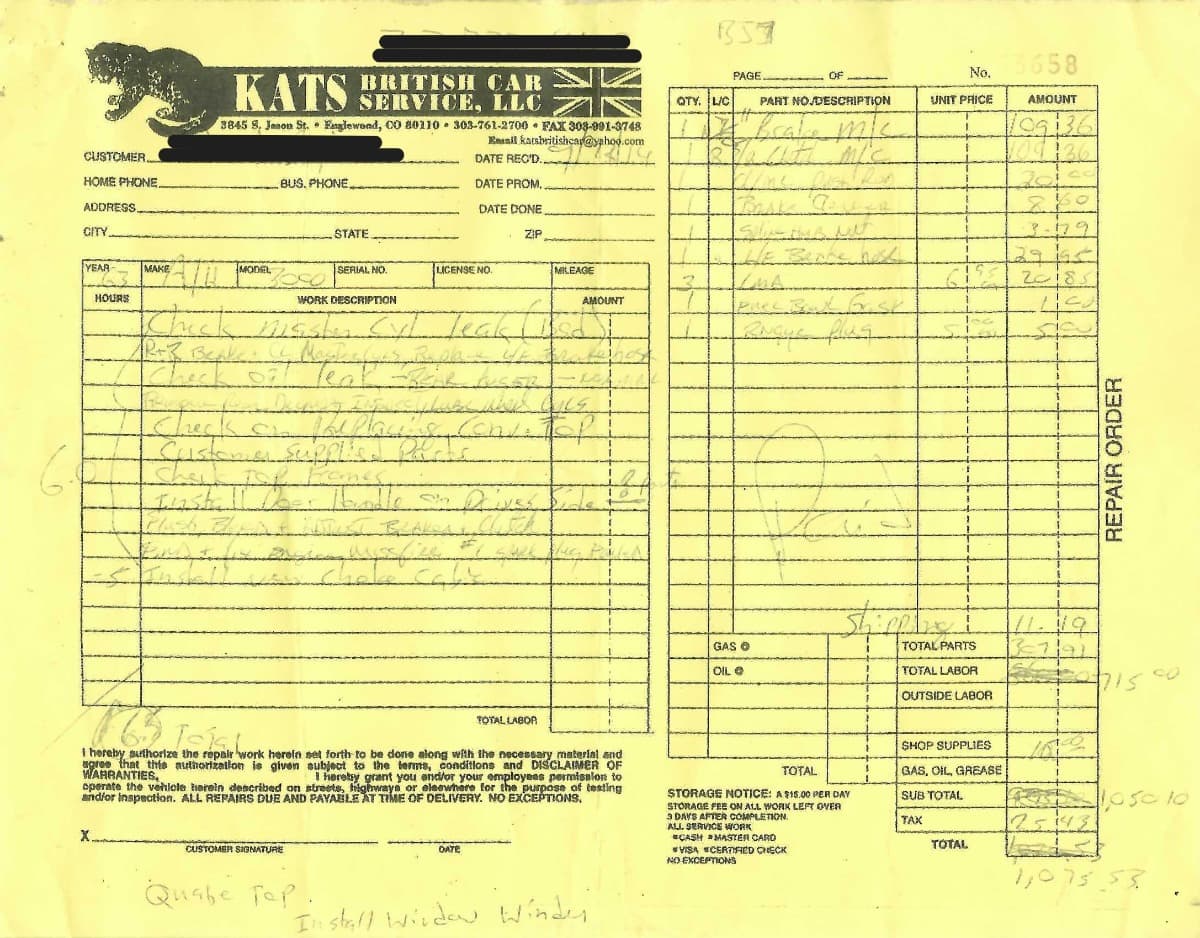 B57
KATS BRITISH CAR SERVICE, LLC
3845 S. Jason St. • Englewood, CO 80110 • 303-761-2700 • FAX 303-991-3748
Email katsbritishcar@yahoo.com
CUSTOMER
DATE REC'D.
HOME PHONE BUS. PHONE DATE PROM.
ADDRESS DATE DONE
CITY STATE ZIP
YEAR 63 MAKE A/H MODEL 3000 SERIAL NO. LICENSE NO. MILEAGE
HOURS WORK DESCRIPTION AMOUNT
Check master cyl leak (Bad)
R+R Brake + Replace Brake hose
Check oil leak - REAR - NORMAL
Check on Replacing Conv. Top
Customer Supplied Parts
Check Top Frames
6.0
Install Door Handle on Drivers Side
Flush, Bleed + Brakes + Clutch
Engine Missfire #1 spark plug
.5 Install Choke Cable
6.5 Total
TOTAL LABOR
I hereby authorize the repair work herein set forth to be done along with the necessary material and
agree that this authorization is given subject to the terms, conditions and DISCLAIMER OF
WARRANTIES. I hereby grant you and/or your employees permission to
operate the vehicle herein described on streets, highways or elsewhere for the purpose of testing
and/or inspection. ALL REPAIRS DUE AND PAYABLE AT TIME OF DELIVERY. NO EXCEPTIONS.
X
CUSTOMER SIGNATURE DATE
Quote Top
Install Window Winder
PAGE OF No. 3658
QTY. L/C PART NO./DESCRIPTION UNIT PRICE AMOUNT
1 Brake M/C 109 36
1 M/C 109 36
1 20 00
1 Brake 8 60
1 3.79
1 Brake hose 29 95
3 LMA 6 95 20 85
1 1 00
1 plug 5.00 5.00
Paid
Shipping 11.19
GAS @ TOTAL PARTS 307 91
OIL @ TOTAL LABOR 715 00
OUTSIDE LABOR
SHOP SUPPLIES
TOTAL GAS, OIL, GREASE
SUB TOTAL 1,050 10
TAX 25.43
TOTAL 1,075.53
STORAGE NOTICE: A $15.00 PER DAY
STORAGE FEE ON ALL WORK LEFT OVER
3 DAYS AFTER COMPLETION.
ALL SERVICE WORK
*CASH *MASTER CARD
*VISA *CERTIFIED CHECK
NO EXCEPTIONS
REPAIR ORDER